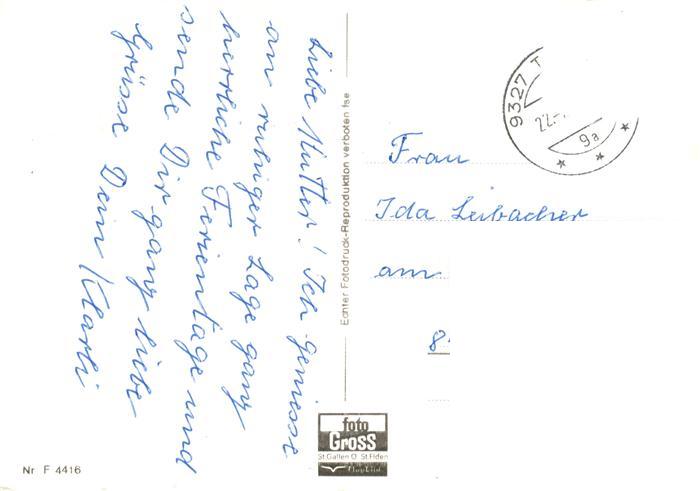 Liebe Mutter! Ich geniesse
an ruhiger Lage ganz
herrliche Ferientage und
sende Dir ganz liebe
Grüsse Dein Klärli
Echter Fotodruck-Reproduktion verboten tse
9327 T
22.-
9a
Frau
Ida Leibacher
am
8
foto
GROSS
St.Gallen O St.Fiden
Nr F 4416